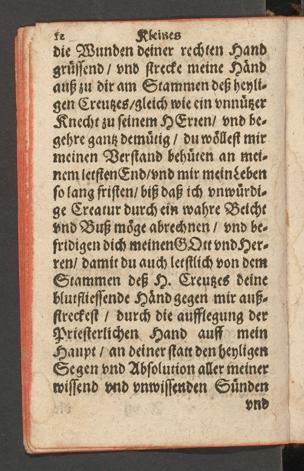 12 Kleines
die Wunden deiner rechten Hand
grüssend / vnd strecke meine Händ
auß zu dir am Stammen deß heyli-
gen Creutzes / gleich wie ein vnnützer
Knecht zu seinem HErren / vnd be-
gehre gantz demütig / du wöllest mir
meinen Verstand behüten an mei-
nem letsten End / vnd mir mein Leben
so lang fristen / biß daß ich vnwürdi-
ge Creatur durch ein wahre Beicht
vnd Buß möge abrechnen / vnd be-
fridigen dich meinen GOtt vnd Her-
ren / damit du auch letstlich von dem
Stammen deß H. Creutzes deine
blutfliessende Händ gegen mir auß-
streckest / durch die aufflegung der
Priesterlichen Hand auff mein
Haupt / an deiner statt den heyligen
Segen vnd Absolution aller meiner
wissend vnd vnwissenden Sünden
vnd